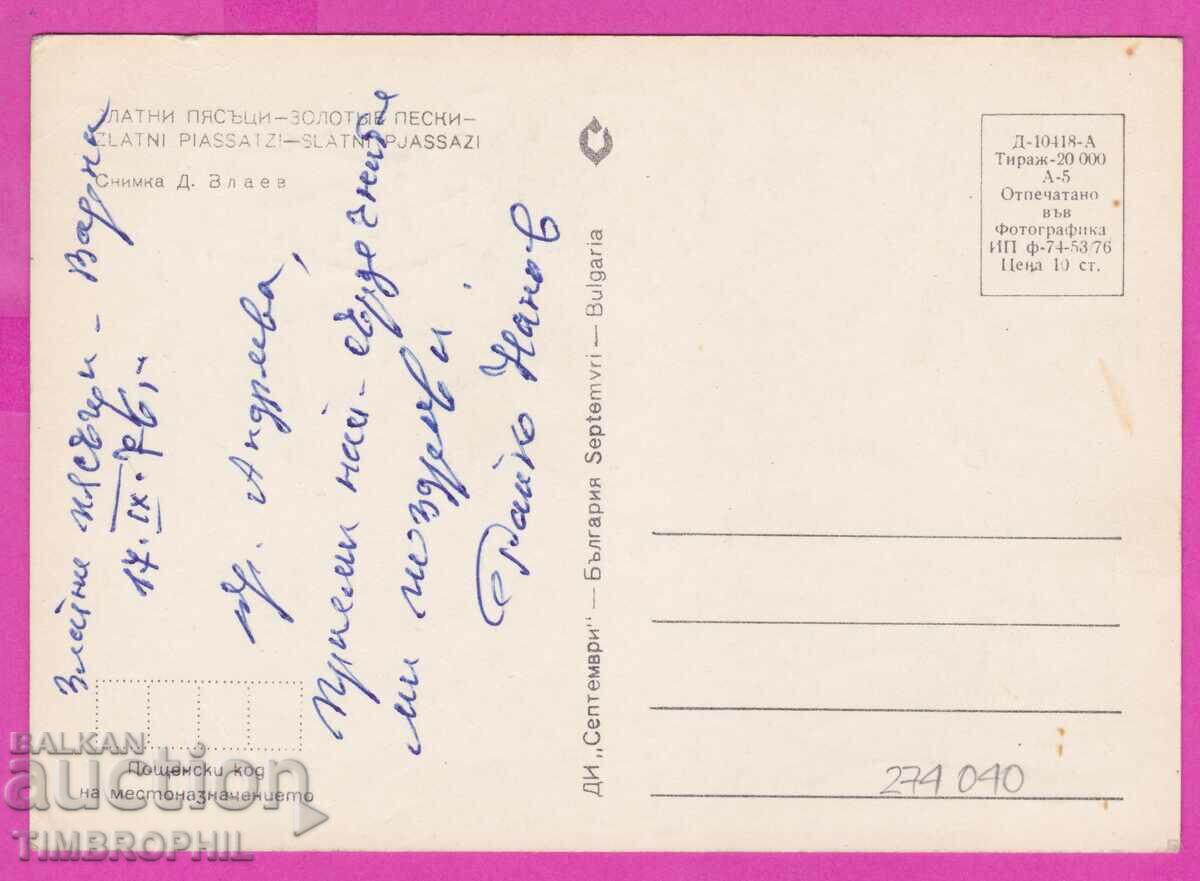 ЗЛАТНИ ПЯСЪЦИ—ЗОЛОТЫЕ ПЕСКИ—
ZLATNI PIASSATZI—SLATNI PJASSAZI
Снимка Д. Влаев
Златни пясъци - Варна
17.IX.76,-
др. Андреева,
Приеми най-сърдечните
ми поздрави
Райко Нанов
Пощенски код
на местоназначението
ДИ „Септември" — България Septemvri — Bulgaria
Д-10418-А
Тираж-20 000
А-5
Отпечатано
във
Фотографика
ИП ф-74-53/76
Цена 10 ст.
274 040
BALKAN
auction
TIMBROPHIL